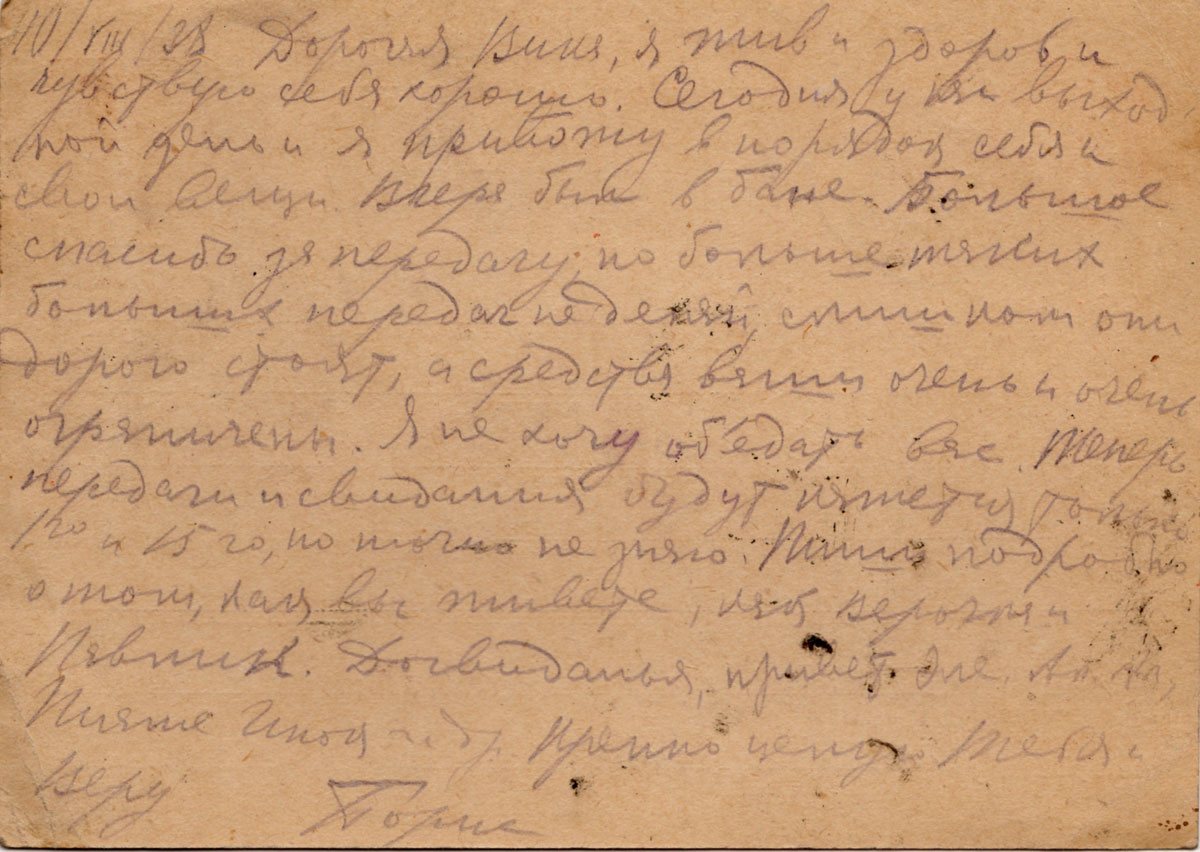 10/VIII/38 Дорогая Вика, я жив и здоров и
чувствую себя хорошо. Сегодня у нас выход
ной день и я привожу в порядок себя и
свои вещи. Вчера был в бане. Большое
спасибо за передачу, но больше таких
больших передач не делай, слишком они
дорого стоят, а средства ваши очень и очень
ограничены. Я не хочу объедать вас. Теперь
передачи и свидания будут кажется только
1го и 15 го, но точно не знаю. Пиши подробно
о том, как вы живете, как Верочка и
Павлик. Досвиданья, привет
и др. Крепко целую тебя и
Веру Борис